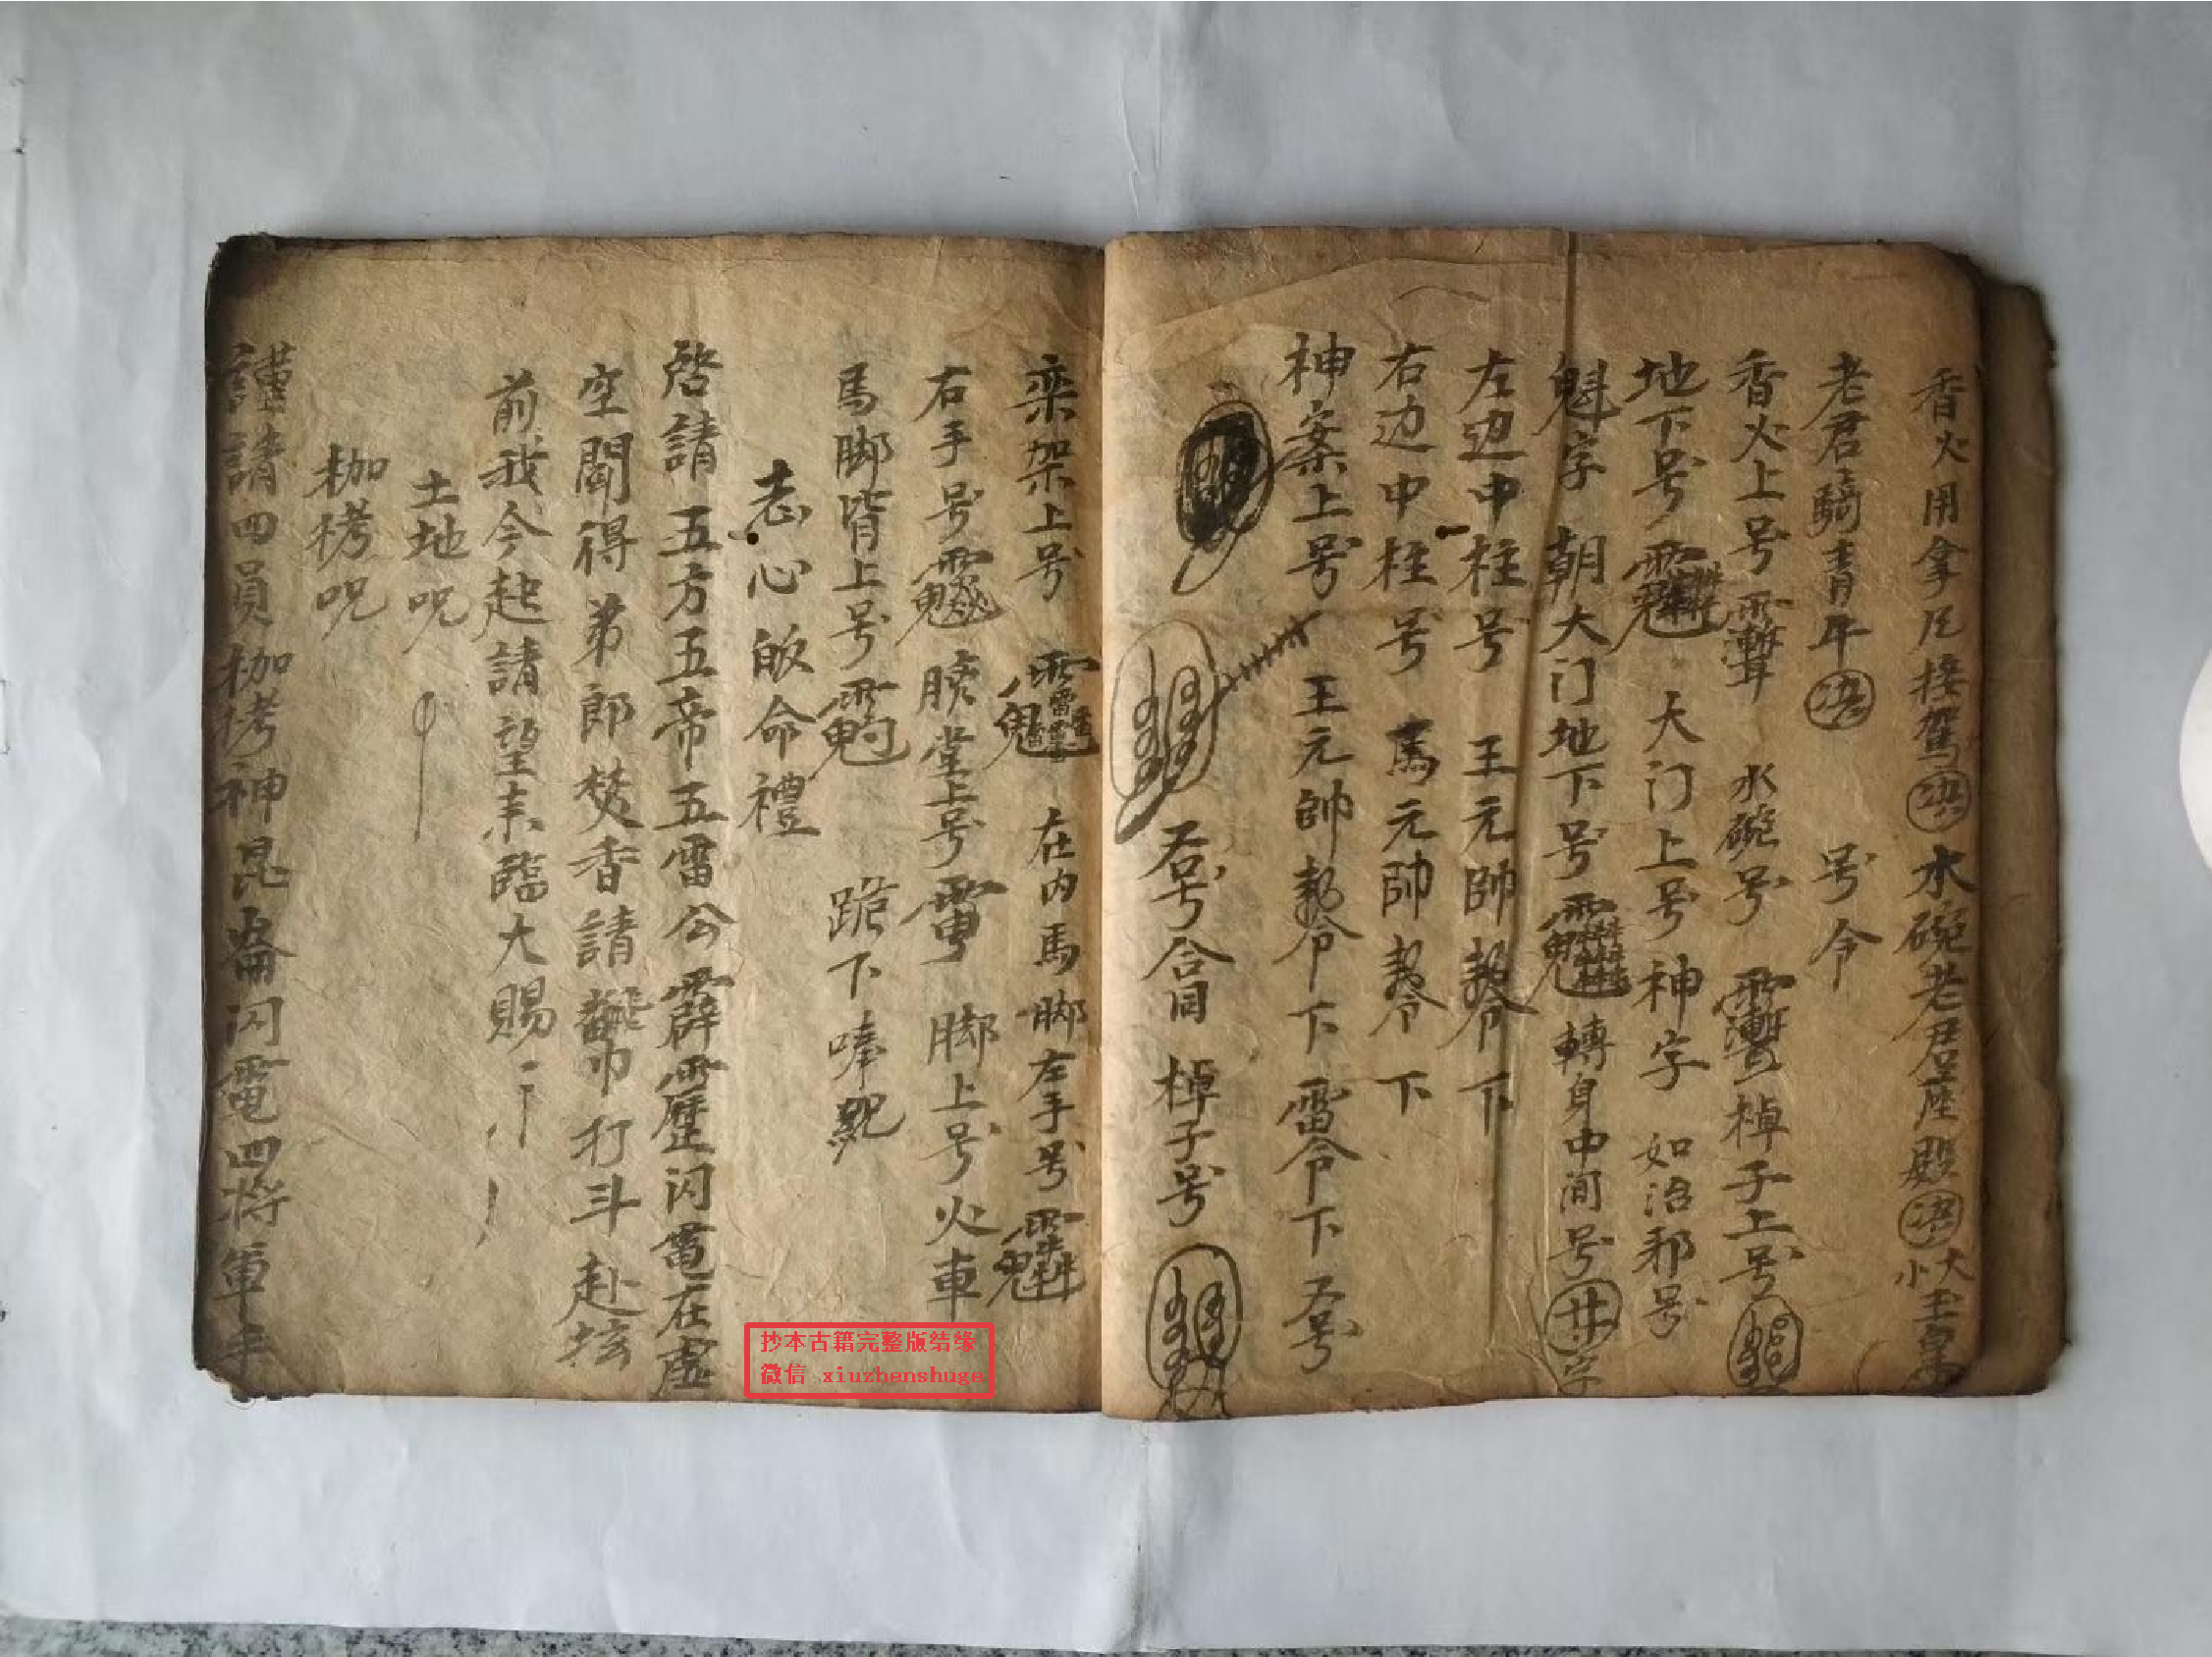 香火用拿 接駕 水碗老君座殿 大小玉皇
老君騎青牛 号令
香火上号 水碗号 棹子上号
地下号 大门上号神字 如治邪号
魁字 朝大门地下号 轉身中间号 廿字
左边中柱号 王元帥勅令下
右边中柱号 馬元帥勅令下
神案上号 王元帥勅令下雷令下 号
号合同 棹子号
栾架上号 在内馬脚左手号
右手号 堂上号 脚上号火車
馬脚背上号 跪下奉
志心皈命禮
啓請五方五帝五雷公霹靂闪電在虚
空聞得弟郎焚香請 巾打斗赴坛
前我今起請望來臨大賜
土地呪
枷栲呪
謹請四員枷栲神昆崙闪電四将軍手
抄本古籍完整版结缘
微信 xiuzhenshuge